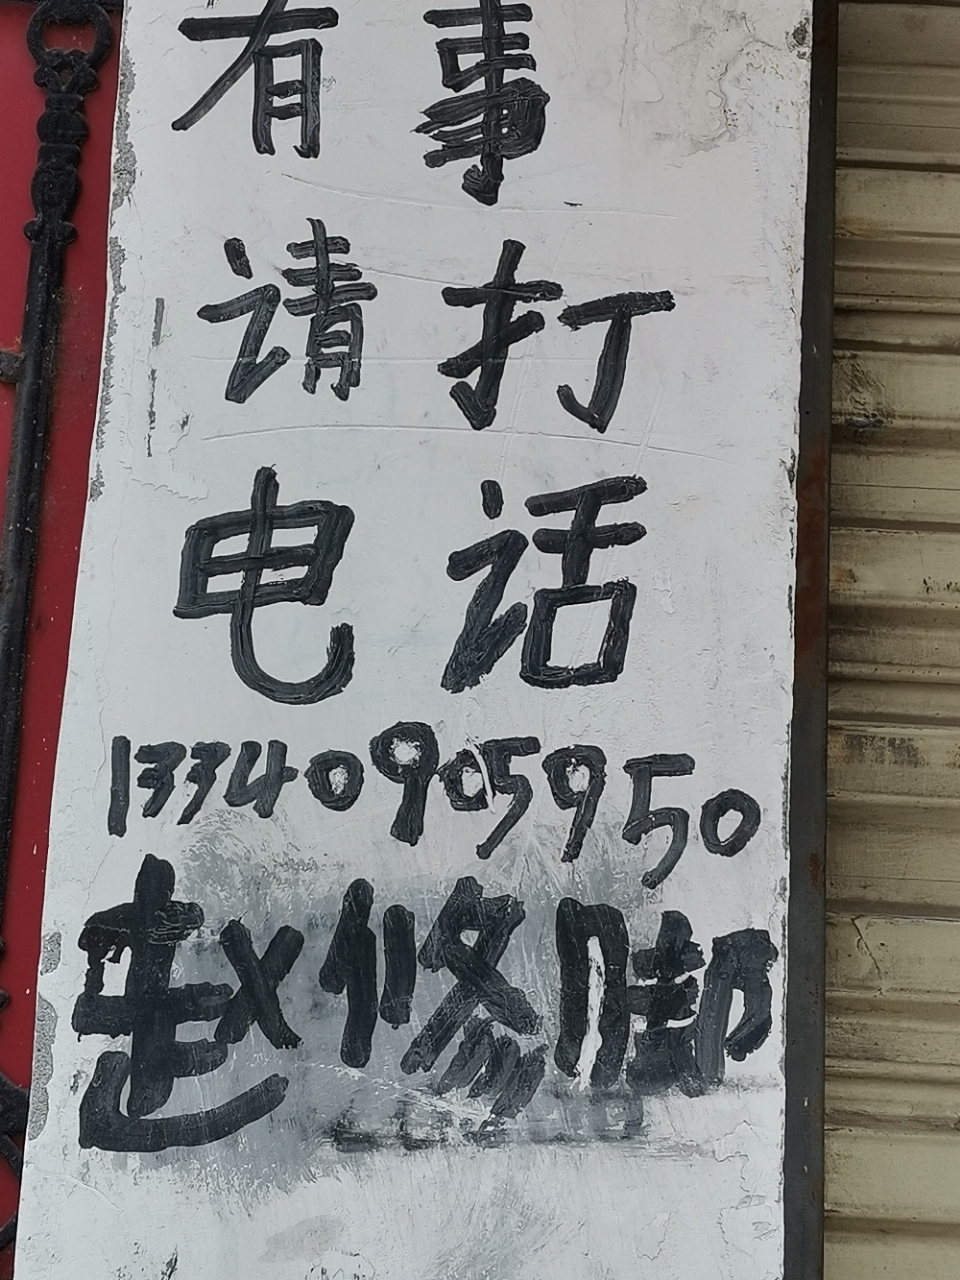 有事
请打
电话
13340905950
赵修脚